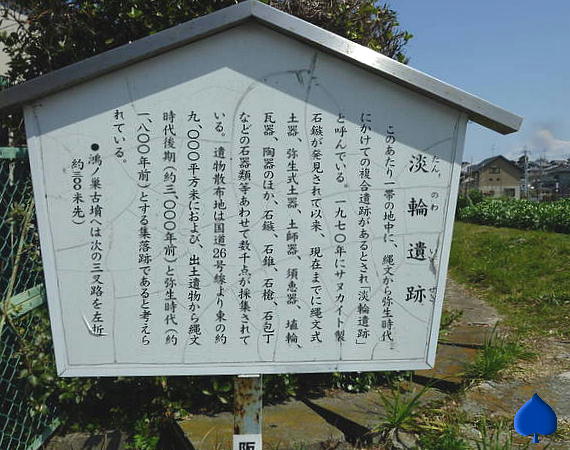 淡輪遺跡
たんのわいせき
このあたり一帯の地中に、縄文から弥生時代
にかけての複合遺跡があるとされ「淡輪遺跡」
と呼んでいる。一九七〇年にサヌカイト製
石鏃が発見されて以来、現在までに縄文式
土器、弥生式土器、土師器、須恵器、埴輪、
瓦器、陶器のほか、石鏃、石錐、石槍、石包丁
などの石器類等あわせて数千点が採集されて
いる。遺物散布地は国道26号線より東の約
九、〇〇〇平方米におよび、出土遺物から縄文
時代後期（約三、〇〇〇年前）と弥生時代（約
一、八〇〇年前）とする集落跡であると考えら
れている。
●鴻ノ巣古墳へは次の三叉路を左折
約三〇〇米先）
阪